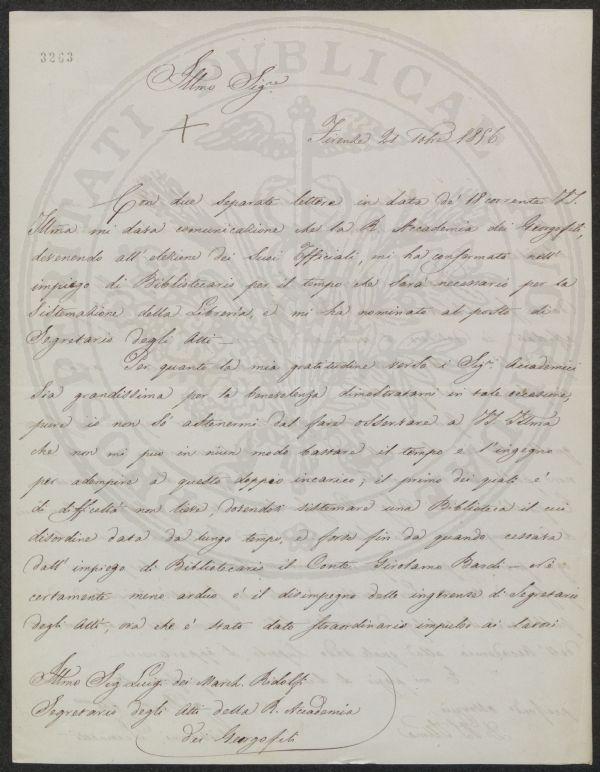 3263
Illmo Sigre
Firenze 21 1856
Con due separate lettere in data de' 18 corrente VS.
Illma mi dava comunicazione che la R. Accademia dei Georgofili,
devenendo all' elezione dei Suoi Officiali, mi ha confermato nell'
impiego di Bibliotecario per il tempo che sarà necessario per la
sistemazione della Libreria, e mi ha nominato al posto di
Segretario degli Atti —
Per quanto la mia gratitudine verso i Sigri Accademici
sia grandissima per la benevolenza dimostratami in tale occasione,
pure io non so astenermi dal fare osservare a VS Illma
che non mi può in niun modo bastare il tempo e l'ingegno
per adempire a questo doppio incarico; il primo dei quali è
di difficoltà non lieve, dovendosi sistemare una Biblioteca il cui
disordine data da lungo tempo, e forse fin da quando cessava
dall' impiego di Bibliotecario il Conte Girolamo Bardi — nè
certamente meno arduo è il disimpegno delle ingerenze di Segretario
degli Atti, ora che è stato dato straordinario impulso ai lavori
Illmo Sig Luigi dei March. Ridolfi
Segretario degli Atti della R. Accademia
dei Georgofili